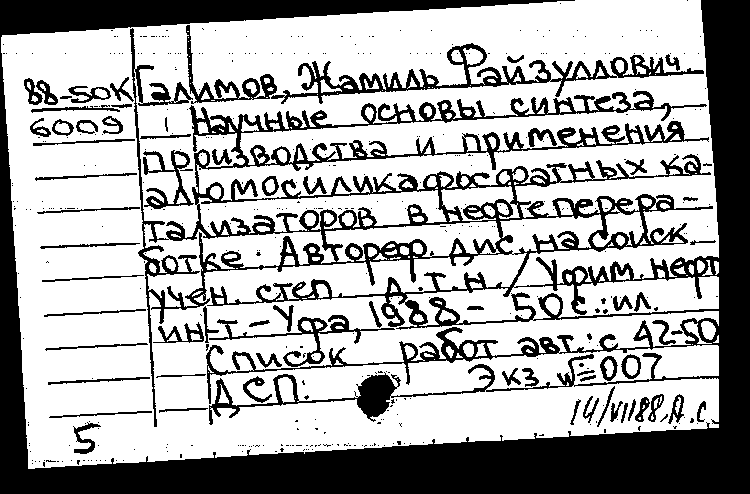 88-50К Галимов, Жамиль Файзуллович.
6009 Научные основы синтеза,
производства и применения
алюмосиликафосфатных ка-
тализаторов в нефтеперера-
ботке: Автореф. дис. на соиск.
учен. степ. д.т.н. / Уфим. нефт
ин-т. - Уфа, 1988. - 50 с.: ил.
Список работ авт.: с. 42-50
ДСП. Экз. № 007.
5 14/VII88, А. С.